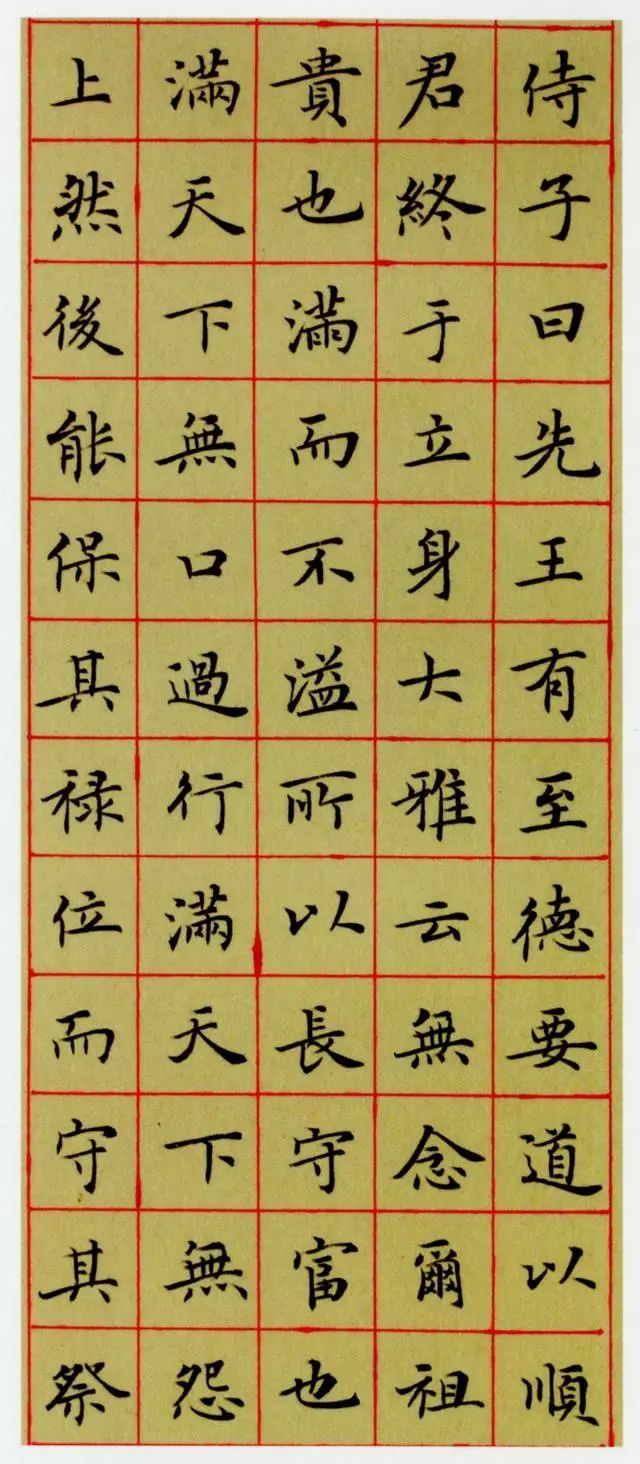 侍子曰先王有至德要道以順
君終于立身大雅云無念爾祖
貴也滿而不溢所以長守富也
滿天下無口過行滿天下無怨
上然後能保其禄位而守其祭